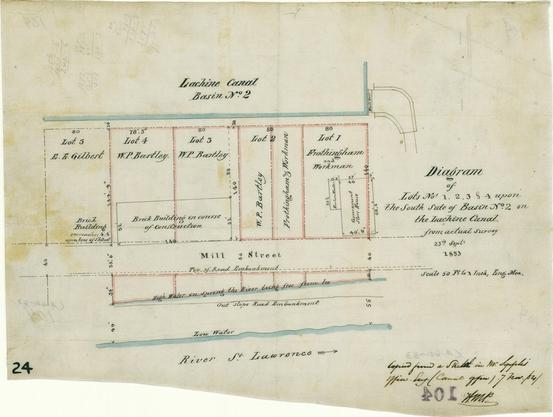 Lachine Canal
Basin No. 2
80
78.5
80
80
80
Lot 5
E. E. Gilbert
Lot 4
W.P. Bartley
Lot 3
W.P. Bartley
Lot 2
W.P. Bartley
Frothingham & Workman
Lot 1
Frothingham
and
Workman
Brick
Building
Brick Building in course
of Construction
140
Mill Street
Top of Road Embankment
High Water in spring the River being free from Ice
Out Slope Road Embankment
Low Water
River St. Lawrence
Diagram
of
Lots Nos. 1, 2, 3 & 4 upon
the South Side of Basin No. 2 on
the Lachine Canal.
from actual survey
25th Septr.
1853
Scale 50 Ft. to 1 Inch, Eng. Mea.
Copied from a Sketch in Mr.
24
104